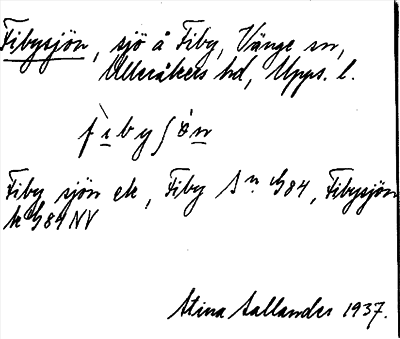 Fibysjön, sjö å Fiby, Vänge sn,
Ulleråkers hd, Upps. l.
fìbyʃön
Fiby sjön ek, Fiby Sn G84, Fibysjön
k G84 NV
Stina Sallander 1937.